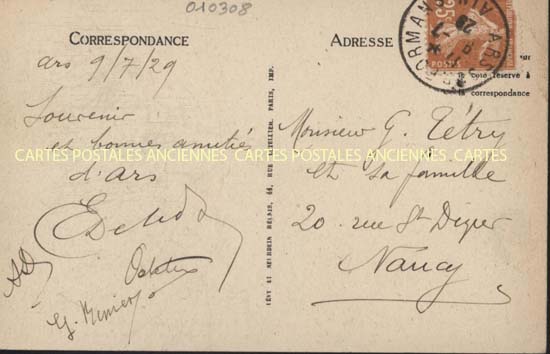 010308
CORRESPONDANCE
ars 9/7/29
Souvenir
et bonnes amitiés
d'Ars
ADRESSE
25c
POSTES
côté réservé à
la correspondance
Monsieur G. Tétry
et sa famille
20. rue St Dizier
Nancy
LÉVY ET NEURDEIN RÉUNIS, 44, RUE LETELLIER, PARIS, IMP.
CARTES POSTALES ANCIENNES CARTES POSTALES ANCIENNES CARTES POSTALES